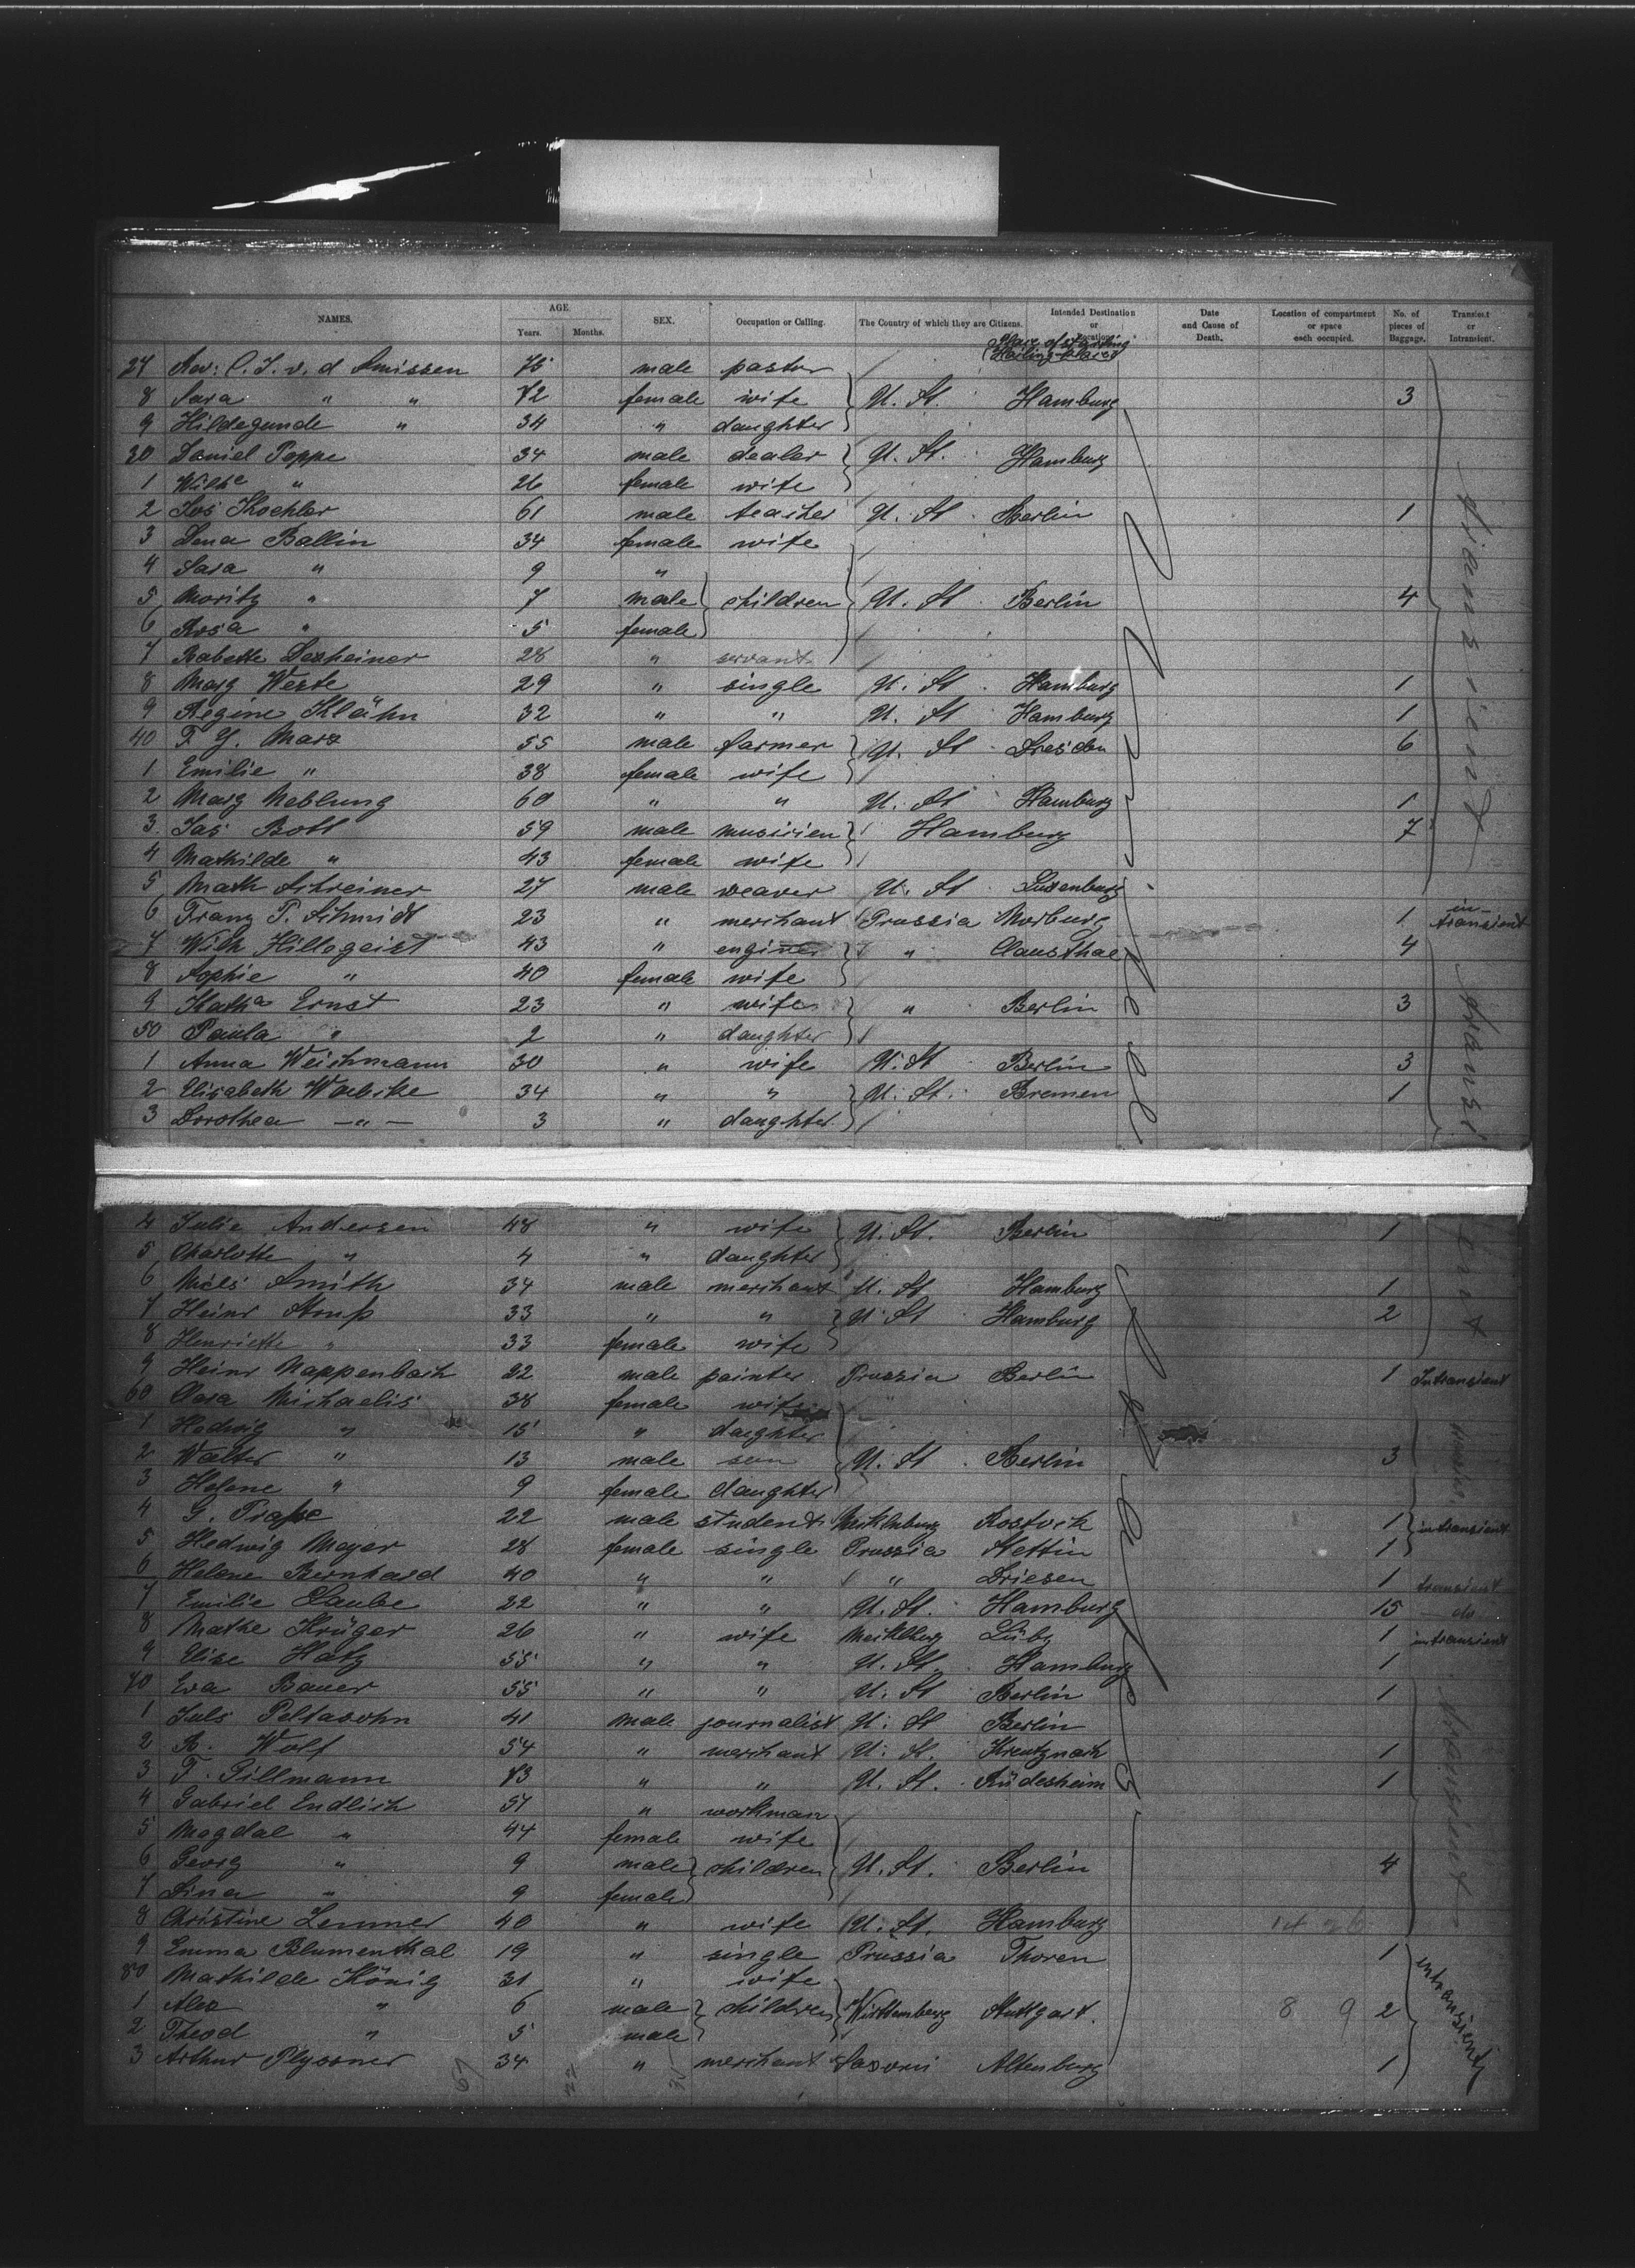 NAMES. AGE. Years. Months. SEX. Occupation or Calling. The Country of which they are Citizens. Intended Destination or Location. Date and Cause of Death. Location of compartment or space each occupied. No. of pieces of Baggage. Transient or Intransient.
Place of starting
(Hailing place)
27 Rev: C. J. v. d Smissen 75 male pastor
8 Sara " " 72 female wife U. St. Hamburg 3
9 Hildegunde " 34 " daughter
30 Daniel Poppe 34 male dealer U. St. Hamburg
1 Wilhe " 26 female wife
2 Jos Koehler 61 male teacher U. St. Berlin 1
3 Lena Ballin 34 female wife
4 Sara " 9 "
5 Moritz " 7 male children U. St. Berlin 4
6 Rosa " 5 female
7 Babette Dexheiner 28 " servant
8 Marg Weste 29 " single U. St. Hamburg 1
9 Regine Klähn 32 " " U. St Hamburg 1
40 F. G. Marx 55 male farmer U. St. Dresden 6
1 Emilie " 38 female wife
2 Marg Neblung 60 " " U. St Hamburg 1
3 Jas Bott 59 male musicien Hamburg 7
4 Mathilde " 43 female wife
5 Math Schreiner 27 male weaver U. St Luxenburg
6 Franz P. Schmidt 23 " merchant Prussia Marburg 1 in-transient
7 Wilh Hillegeist 43 " enginer " Clausthal 4
8 Sophie " 40 female wife
9 Katha Ernst 23 " wife " Berlin 3
50 Paula " 2 " daughter
1 Anna Weichmann 30 " wife U. St Berlin 3
2 Elisabeth Woebcke 34 " " U. St. Bremen 1
3 Dorothea — " — 3 " daughter
transient
transient
4 Julie Andersen 48 " wife U. St. Berlin 1
5 Charlotte " 4 " daughter
6 Niels Smith 34 male merchant U. St Hamburg 1
7 Heinr Struß 33 " " U. St Hamburg 2
8 Henriette " 33 female wife
9 Heinr Nappenbach 22 male painter Prussia Berlin 1 Intransient
60 Clara Michaelis 38 female wife
1 Hedwig " 15 " daughter
2 Walter " 13 male son U. St. Berlin 3
3 Helene " 9 female daughter
4 G. Praße 22 male student Mecklnburg Rostock 1 intransient
5 Hedwig Meyer 28 female single Prussia Stettin 1
6 Helene Bernhard 40 " " " Driesen 1 transient
7 Emilie Laube 22 " " U. St. Hamburg 15 — do
8 Marthe Krüger 26 " wife Mecklbrg Lübz 1 intransient
9 Elise Hatz 55 " " U. St. Hamburg 1
70 Eva Bauer 55 " " U. St Berlin 1
1 Juls Peltasohn 41 male journalist U. St Berlin
2 R. Wolf 54 " merchant U. St. Kreutznach 1
3 F. Tillmann 73 " " U. St. Rüdesheim 1
4 Gabriel Endlich 51 " workman
5 Magdal " 44 female wife
6 Georg " 9 male children U. St. Berlin 4
7 Lina " 9 female
8 Christine Lemmer 40 " wife U. St. Hamburg 14 26
9 Emma Blumenthal 19 " single Prussia Thoren 1
80 Mathilde König 31 " wife
1 Alex " 6 male children Württemberg Stuttgart. 8 9 2
2 Theod " 5 male
3 Arthur Plyssner 34 " merchant Saxoni Altenburg 1
transient
intransient
67 22